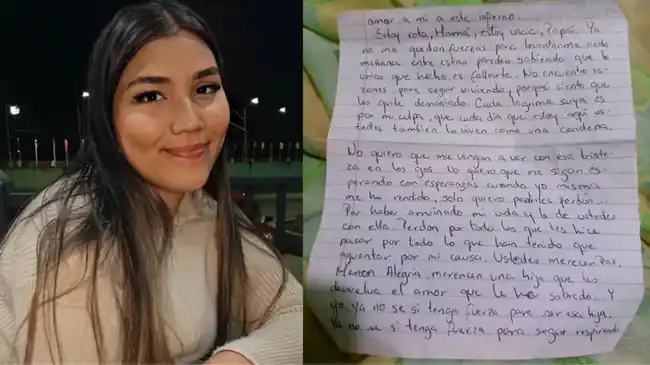 amor a mi a este infierno.
Estoy rota, Mamá, estoy vacia, Papá. Ya
no me quedan fuerzas para levantarme cada
mañana entre estas paredes sabiendo que lo
unico que hecho es fallarle. No encuentro ra-
zones para seguir viviendo, porque siento que
les quite demasiado. Cada lagrima suya es
por mi culpa, que cada dia que estoy aqui us-
tedes tambien la viven como una condena.
No quiero que me vengan a ver con esa triste-
za en los ojos. No quiero que me sigan es-
perando con esperanzas cuando yo misma
me he rendido, solo quiero pedirles perdon...
Por haber arruinado mi vida y la de ustedes
con ella. Perdon por todo los que les hice
pasar por todo lo que han tenido que
aguantar por mi causa. Ustedes merecen Paz.
Merecen Alegria, merecen una hija que les
devuelva el amor que le he sobrado... Y
yo ya no se si tenga fuerza para ser esa hija.
Ya no se si tenga fuerza para seguir respirando